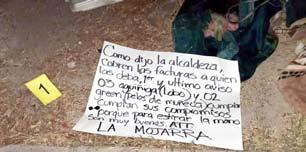 1
Como dijo la alcaldeza,
cobren las facturas a quien
los deba, 1er y ultimo aviso
03 aguiñiga (lobo) y 02
green (pelos de muñeca) cumplan
cumplan sus compromisos
porque para estirar la mano
son muy buenos. ATT
LA MOJARRA